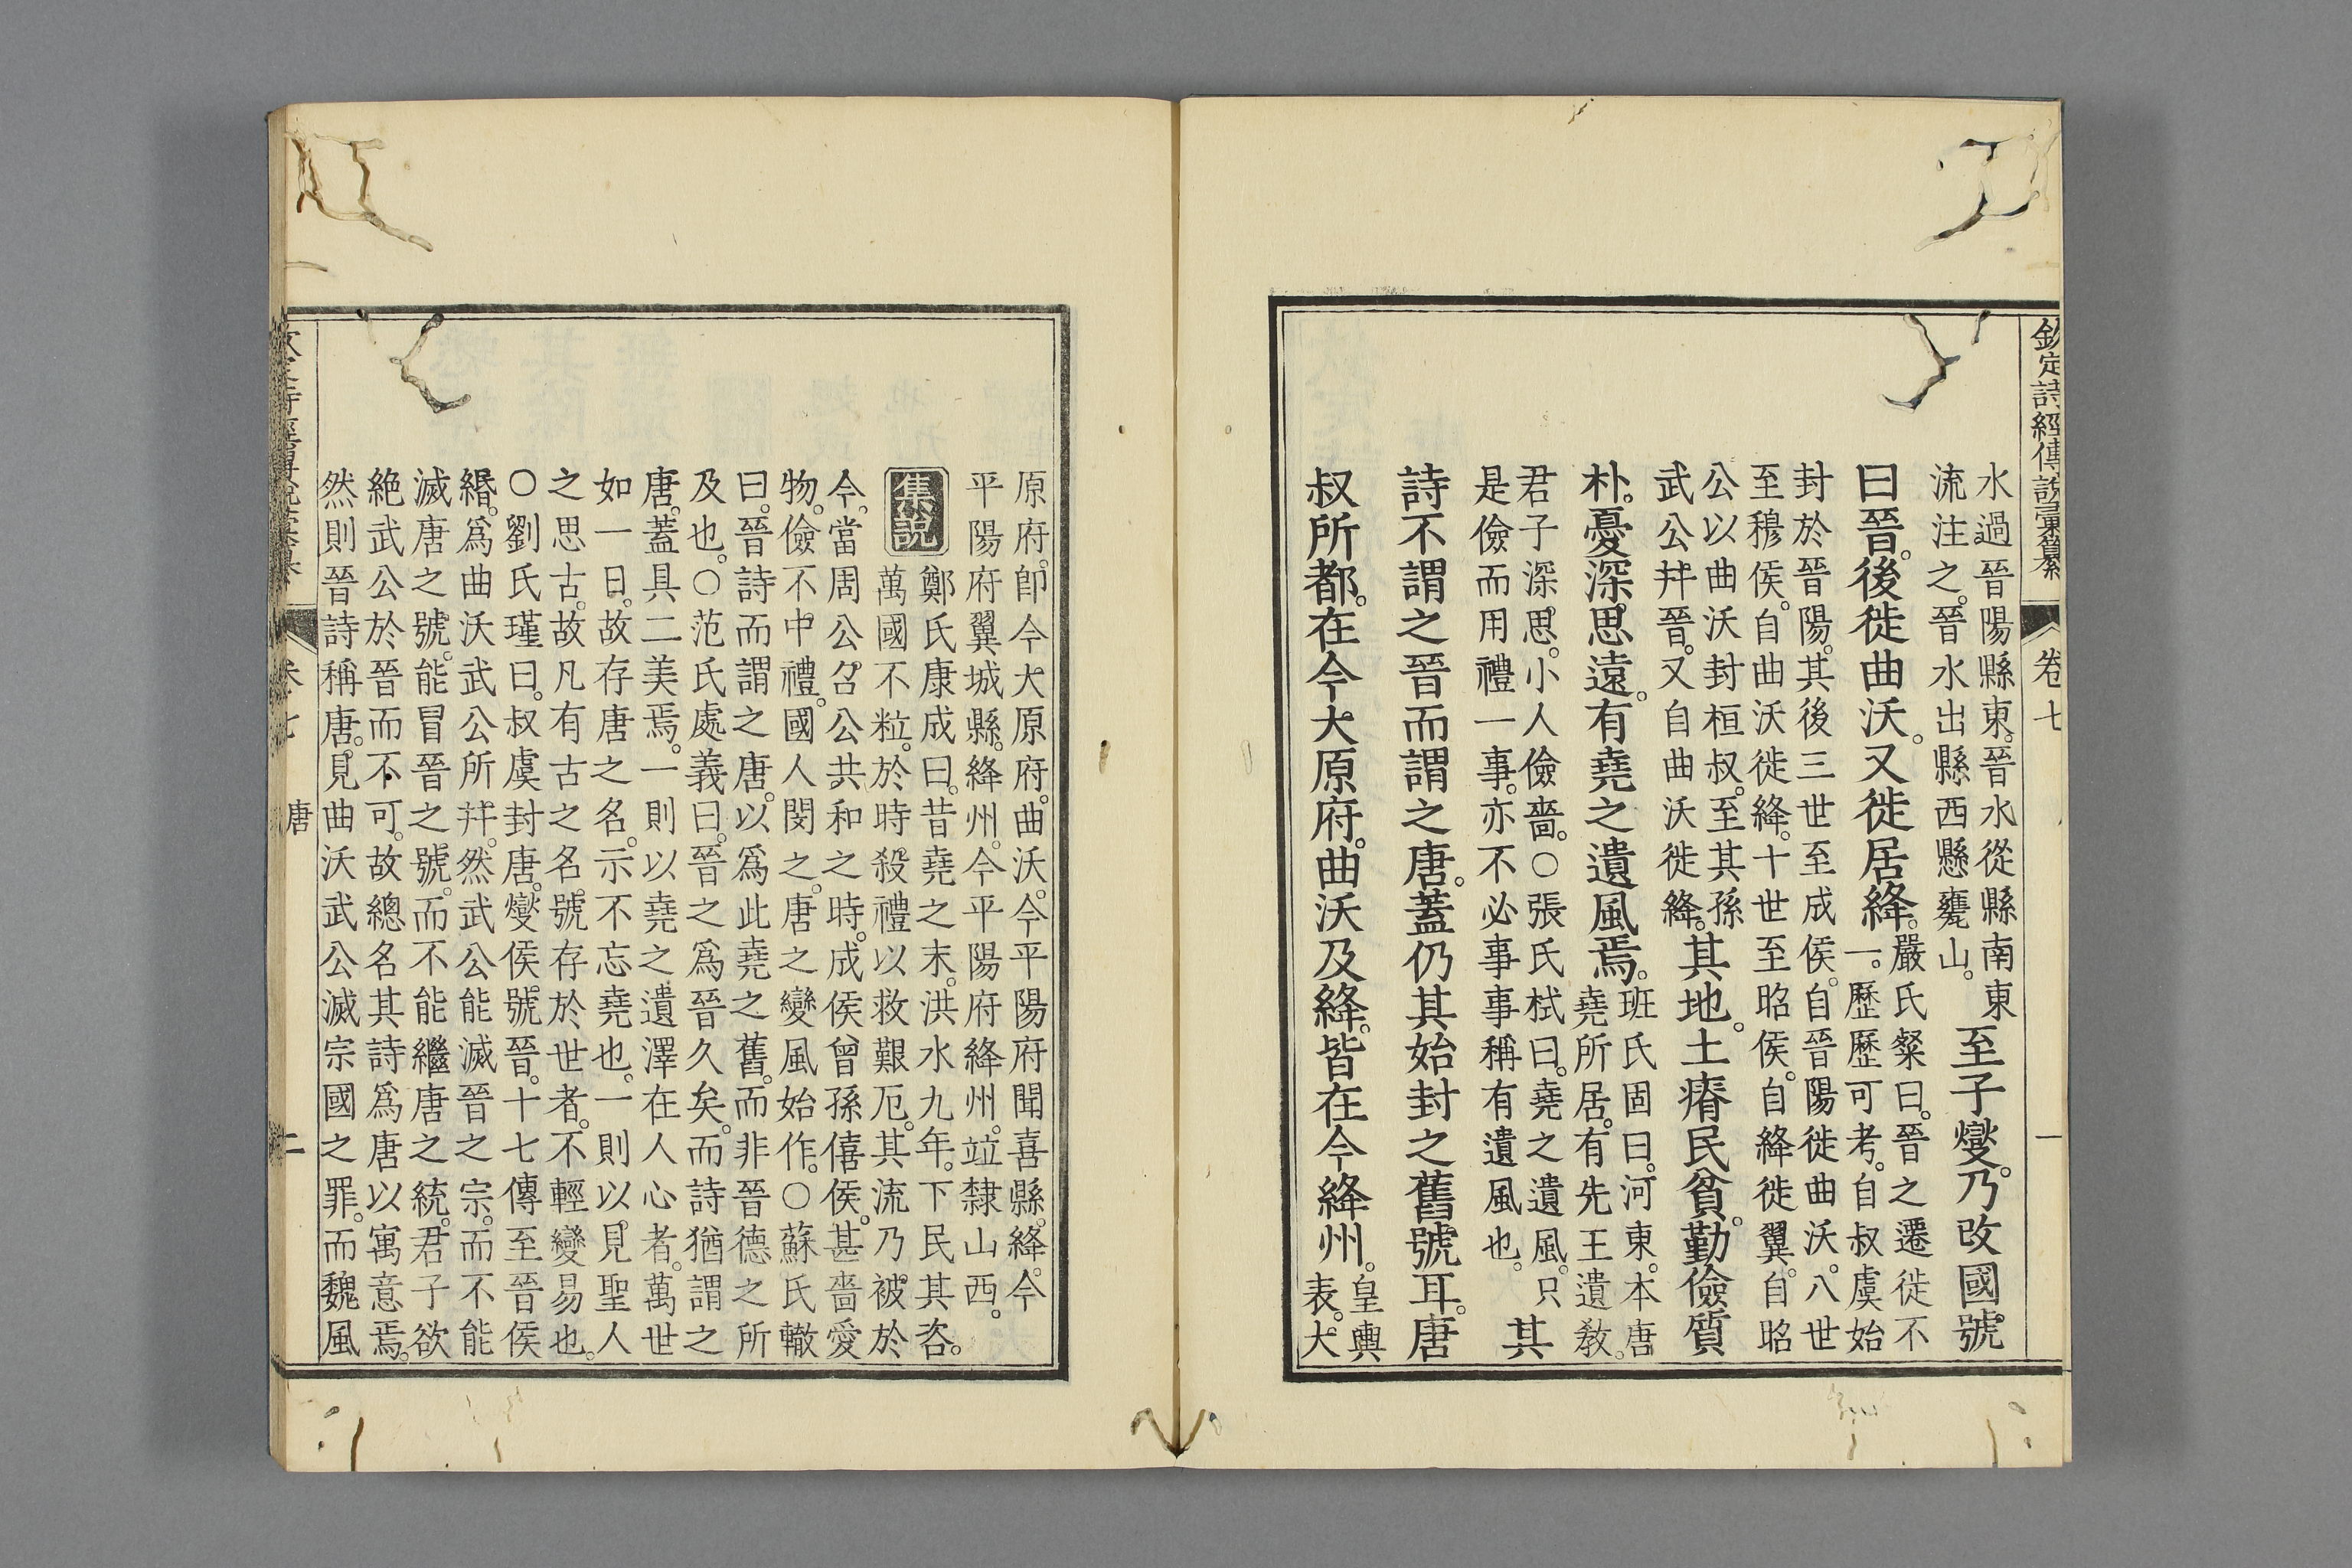 欽定詩經傳說彙纂 卷七 一
水過晉陽縣東。晉水從縣南東
流注之。晉水出縣西懸甕山。
至子燮。乃改國號
曰晉。後徙曲沃。又徙居絳。
嚴氏粲曰。晉之遷徙不
一。歷歷可考。自叔虞始
封於晉陽。其後三世至成侯。自晉陽徙曲沃。八世
至穆侯。自曲沃徙絳。十世至昭侯。自絳徙翼。自昭
公以曲沃封桓叔。至其孫
武公并晉。又自曲沃徙絳。
其地。土瘠民貧。勤儉質
朴。憂深。思遠。有堯之遺風焉。
班氏固曰。河東。本唐
堯所居。有先王遺教。
君子深思。小人儉嗇。○張氏栻曰。堯之遺風。只
是儉而用禮一事。亦不必事事稱有遺風也。
其
詩不謂之晉而謂之唐。蓋仍其始封之舊號耳。唐
叔所都。在今大原府。曲沃及絳。皆在今絳州。
皇輿
表。大
原府。卽今大原府。曲沃。今平陽府聞喜縣。絳。今
平陽府翼城縣。絳州。今平陽府絳州。竝隸山西。
集說
鄭氏康成曰。昔堯之末。洪水九年。下民其咨。
萬國不粒。於時殺禮以救艱厄。其流乃被於
今。當周公召公共和之時。成侯曾孫僖侯。甚嗇愛
物。儉不中禮。國人閔之。唐之變風始作。○蘇氏轍
曰。晉詩而謂之唐。以爲此堯之舊。而非晉德之所
及也。○范氏處義曰。晉之爲晉久矣。而詩猶謂之
唐。蓋具二美焉。一則以堯之遺澤在人心者。萬世
如一日。故存唐之名。示不忘堯也。一則以見聖人
之思古。故凡有古之名號存於世者。不輕變易也。
○劉氏瑾曰。叔虞封唐。燮侯號晉。十七傳至晉侯
緡。爲曲沃武公所并。然武公能滅晉之宗。而不能
滅唐之號。能冒晉之號。而不能繼唐之統。君子欲
絶武公於晉而不可。故總名其詩爲唐以寓意焉。
然則晉詩稱唐。見曲沃武公滅宗國之罪。而魏風
卷七 唐 二